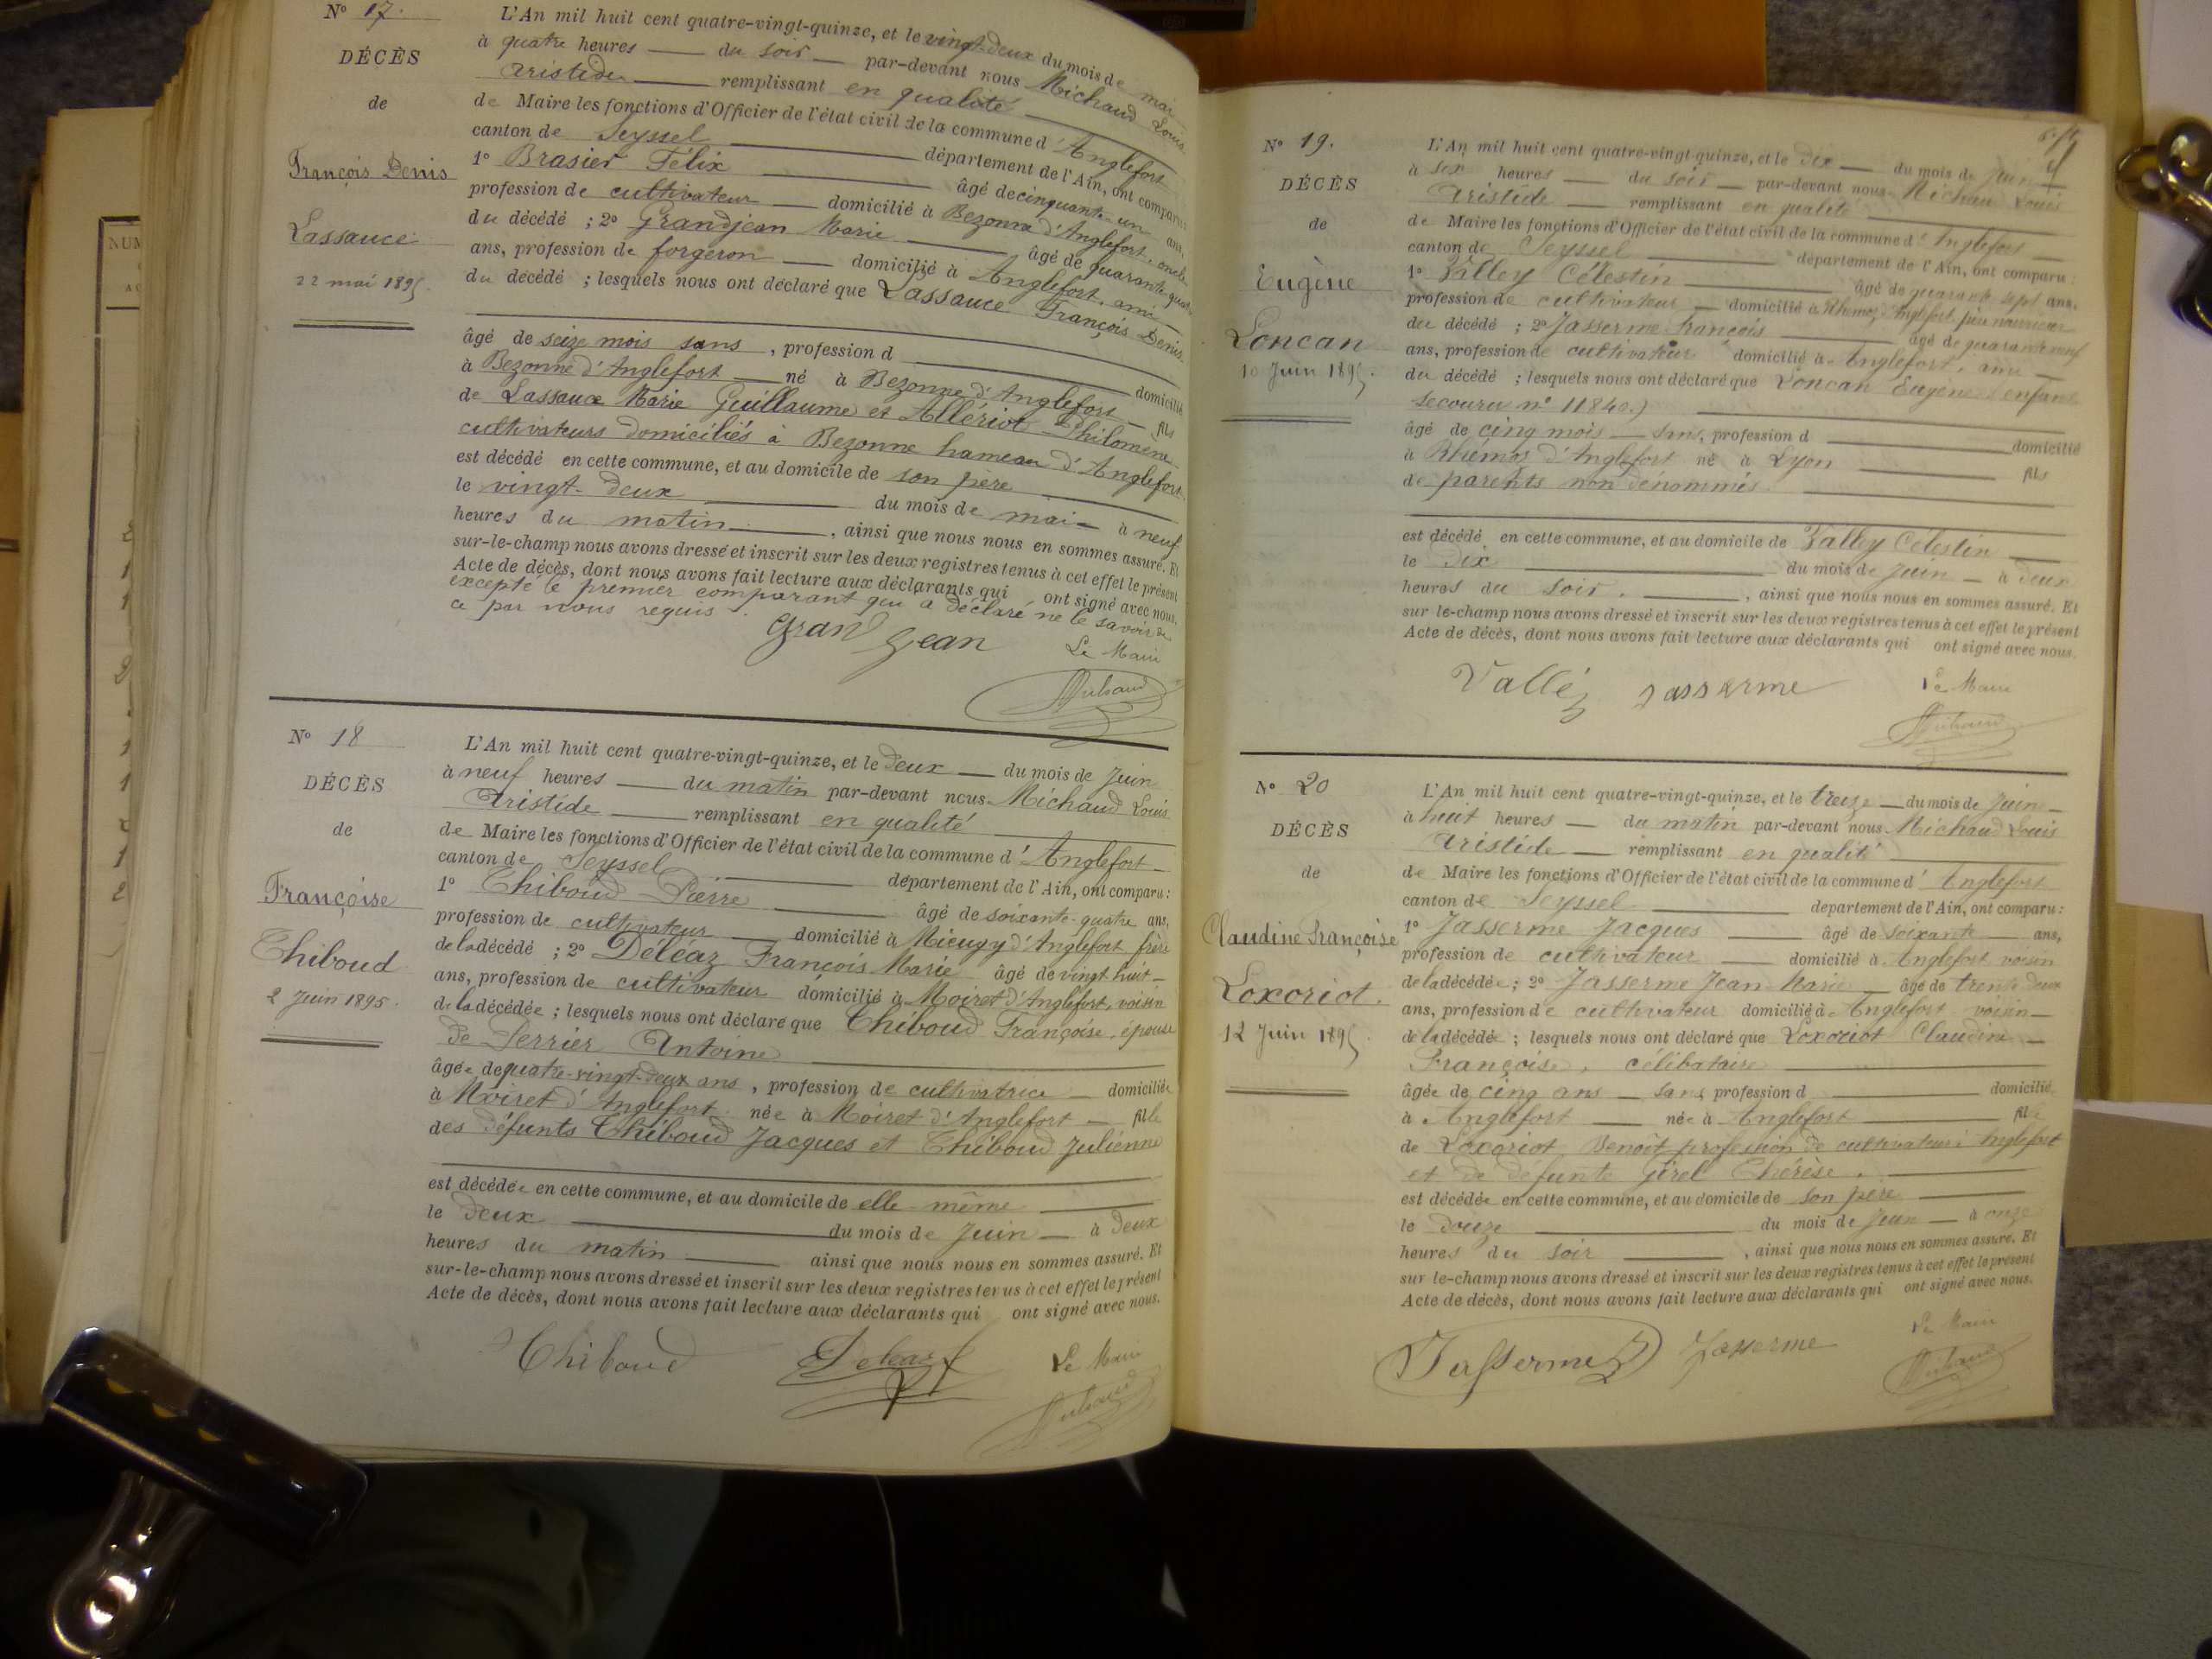 N° 17.
DÉCÈS
de
François Denis
Lassauce
22 mai 1895.
L'An mil huit cent quatre-vingt-quinze, et le vingt-deux du mois de mai
à quatre heures du soir par-devant nous Michaud Louis
Aristide remplissant en qualité
de Maire les fonctions d'Officier de l'état civil de la commune d'Anglefort
canton de Seyssel département de l'Ain, ont comparu
1° Brasier Félix âgé de cinquante-un ans,
profession de cultivateur domicilié à Bezonne d'Anglefort, oncle
du décédé ; 2° Grandjean Marie âgé de quarante-quatre
ans, profession de forgeron domicilié à Anglefort, ami
du décédé ; lesquels nous ont déclaré que Lassauce François Denis
âgé de seize mois sans, profession d domicilié
à Bezonne d'Anglefort né à Bezonne d'Anglefort fils
de Lassauce Marie Guillaume et Allériot Philomène
cultivateurs domiciliés à Bezonne hameau d'Anglefort
est décédé en cette commune, et au domicile de son père
le vingt-deux du mois de mai à neuf
heures du matin, ainsi que nous nous en sommes assuré. Et
sur-le-champ nous avons dressé et inscrit sur les deux registres tenus à cet effet le présent
Acte de décès, dont nous avons fait lecture aux déclarants qui ont signé avec nous,
excepté le premier comparant qui a déclaré ne le savoir de
ce par nous requis.
Grandjean
Le Maire
Michaud
N° 18
DÉCÈS
de
Françoise
Thiboud
2 Juin 1895.
L'An mil huit cent quatre-vingt-quinze, et le deux du mois de Juin
à neuf heures du matin par-devant nous Michaud Louis
Aristide remplissant en qualité
de Maire les fonctions d'Officier de l'état civil de la commune d'Anglefort
canton de Seyssel département de l'Ain, ont comparu :
1° Thiboud Pierre âgé de soixante-quatre ans,
profession de cultivateur domicilié à Mieugy d'Anglefort, frère
de la décédé ; 2° Déléaz François Marie âgé de vingt-huit
ans, profession de cultivateur domicilié à Moiret d'Anglefort, voisin
de la décédée ; lesquels nous ont déclaré que Thiboud Françoise, épouse
de Perrier Antoine
âgée de quatre-vingt-deux ans, profession de cultivatrice domiciliée
à Moiret d'Anglefort née à Moiret d'Anglefort fille
des défunts Thiboud Jacques et Thiboud Julienne
est décédée en cette commune, et au domicile de elle-même
le deux du mois de Juin à deux
heures du matin ainsi que nous nous en sommes assuré. Et
sur-le-champ nous avons dressé et inscrit sur les deux registres tenus à cet effet le présent
Acte de décès, dont nous avons fait lecture aux déclarants qui ont signé avec nous.
Thiboud Deleaz
Le Maire
Michaud
N° 19.
DÉCÈS
de
Eugène
Loncan
10 Juin 1895.
L'An mil huit cent quatre-vingt-quinze, et le dix du mois de Juin
à six heures du soir par-devant nous Michaud Louis
Aristide remplissant en qualité
de Maire les fonctions d'Officier de l'état civil de la commune d'Anglefort
canton de Seyssel département de l'Ain, ont comparu :
1° Valley Célestin âgé de quarante sept ans,
profession de cultivateur domicilié à Rhémoz d'Anglefort père nourricier
du décédé ; 2° Jasserme François âgé de quarante neuf
ans, profession de cultivateur domicilié à Anglefort, ami
du décédé ; lesquels nous ont déclaré que Loncan Eugène (enfant
secouru n° 11840.)
âgé de cinq mois sans, profession d domicilié
à Rhémoz d'Anglefort né à Lyon fils
de parents non dénommés
est décédé en cette commune, et au domicile de Valley Célestin
le dix du mois de Juin à deux
heures du soir, ainsi que nous nous en sommes assuré. Et
sur le-champ nous avons dressé et inscrit sur les deux registres tenus à cet effet le présent
Acte de décès, dont nous avons fait lecture aux déclarants qui ont signé avec nous.
Valléy Jasserme
Le Maire
Michaud
N° 20
DÉCÈS
de
Claudine Françoise
Loxoriot.
12 Juin 1895
L'An mil huit cent quatre-vingt-quinze, et le treize du mois de Juin
à huit heures du matin par-devant nous Michaud Louis
Aristide remplissant en qualité
de Maire les fonctions d'Officier de l'état civil de la commune d'Anglefort
canton de Seyssel département de l'Ain, ont comparu :
1° Jasserme Jacques âgé de soixante ans,
profession de cultivateur domicilié à Anglefort voisin
de la décédée ; 2° Jasserme Jean-Marie âgé de trente deux
ans, profession de cultivateur domicilié à Anglefort voisin
de la décédée ; lesquels nous ont déclaré que Loxoriot Claudine
Françoise, célibataire
âgée de cinq ans sans profession d domicilié
à Anglefort née à Anglefort fille
de Loxoriot Benoît profession de cultivateur à Anglefort
et de défunte Girel Thérèse.
est décédée en cette commune, et au domicile de son père
le douze du mois de Juin à onze
heures du soir, ainsi que nous nous en sommes assuré. Et
sur le-champ nous avons dressé et inscrit sur les deux registres tenus à cet effet le présent
Acte de décès, dont nous avons fait lecture aux déclarants qui ont signé avec nous.
Jasserme Jasserme
Le Maire
Michaud